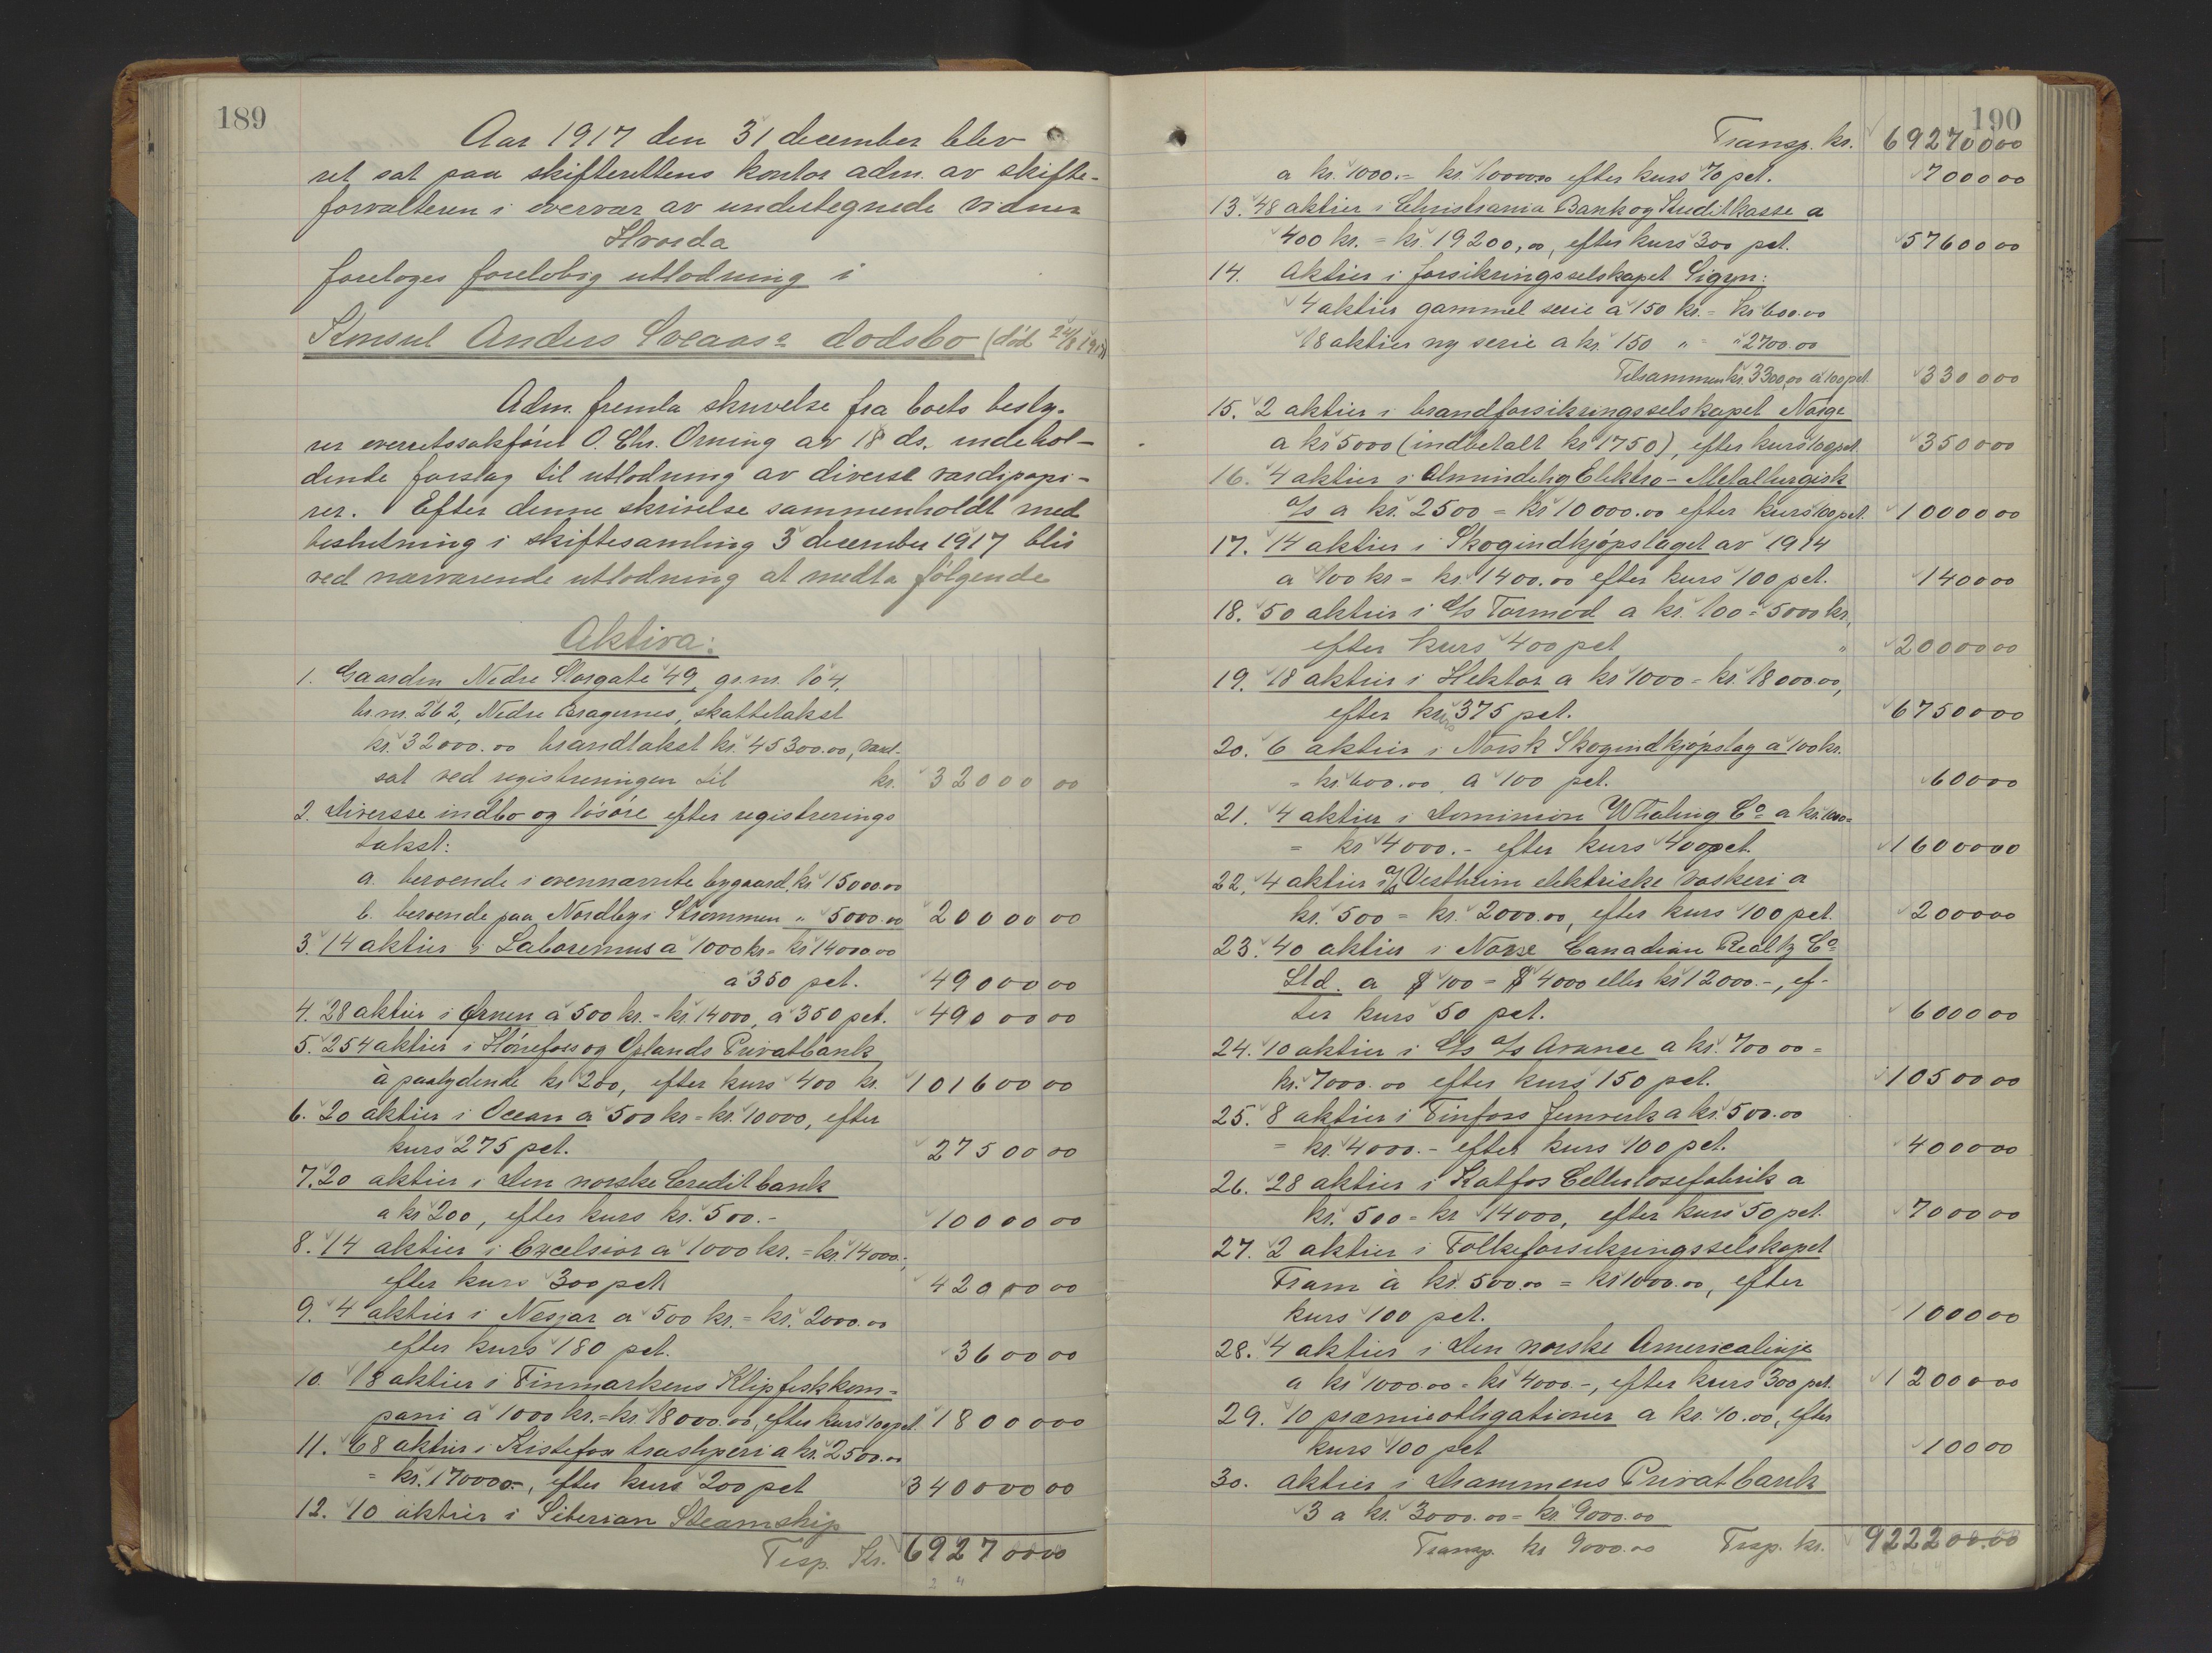 189
Aar 1917 den 31 december blev
ret sat paa skifterettens kontor adm. av skifte-
forvalteren i overvær av undertegnede vidner
Hvorda
foretoges foreløbig utlodning i
Konsul Anders Sveaas's dødsbo (død
Adm. fremla skrivelse fra boets besty-
rer overretssakfører O. Chr. Orning av 18 ds. indehol-
dende forslag til utlodning av diverse værdipapi-
rer. Efter denne skrivelse sammenholdt med
beslutning i skiftesamling 3 december 1917 blir
ved nærværende utlodning at medta følgende
Aktiva:
1. Gaarden Nedre Storgate 49, gr.nr. 104,
br.nr. 262, Nedre Bragernes, skattetakst
kr. 32000.00 brandtakst kr. 45300.00, værd-
sat ved registreringen til kr. 32000 00
2. Diversse indbo og løsøre efter registrerings
takst:
a. beroende i ovennævnte bygaard, kr. 15000.00
b. beroende paa Nordby i Strømmen " 5000.00 20000 00
3. 14 aktier i Laboremus a 1000 kr = kr 14000.00
a 350 pct. 49000 00
4. 28 aktier i Ørnen a 500 kr. = kr. 14000, a 350 pct. 49000 00
5. 254 aktier i Hønefos og Oplands Privatbank
à paalydende kr 200, efter kurs 400 kr. 101600 00
6. 20 aktier i Ocean a 500 kr = kr. 10000, efter
kurs 275 pct. 27500 00
7. 20 aktier i Den norske Creditbank
a kr 200, efter kurs kr. 500.- 10000 00
8. 14 aktier i Excelsior a 1000 kr. = kr 14000.-,
efter kurs 300 pct. 42000 00
9. 4 aktier i Nesjar a 500 kr. = kr. 2000.00
efter kurs 180 pct. 3600 00
10. 18 aktier i Finmarkens Klipfiskkom-
pani a 1000 kr. = kr. 18000.00, efter kurs 100 pct. 18000 00
11. 68 aktier i Kistefos træsliperi a kr. 2500.00
= kr. 170000-, efter kurs 200 pct 340000 00
12. 10 aktier i Siberian Steamship
Trsp. Kr. 692700 00
190
Transp. kr. 692700 00
a kr. 1000.- = kr. 10000.00 efter kurs 70 pct. 7000 00
13. 48 aktier i Christiania Bank og Kreditkasse a
400 kr. = kr. 19200,00, efter kurs 300 pct. 57600 00
14. Aktier i forsikringsselskapet Sigyn:
4 aktier gammel serie a 150 kr. = kr 600.00
18 aktier ny serie a kr. 150 " = " 2700.00
Tilsammen kr. 3300,00 a 100 pct. 3300 00
15. 2 aktier i brandforsikringsselskapet Norge
a kr 5000 (indbetalt kr 1750), efter kurs 100 pct. 3500 00
16. 4 aktier i Almindelig Elektro-Metallurgisk
A/s a kr. 2500 = kr 10000.00 efter kurs 100 pct. 10000 00
17. 14 aktier i Skogindkjøpslaget av 1914
a 100 kr = kr. 1400.00 efter kurs 100 pct. 1400 00
18. 50 aktier i D/s Tormod a kr. 100 = 5000 kr,
efter kurs 400 pct " 20000 00
19. 18 aktier i Hektor a kr 1000 = kr. 18000.00,
efter kurs 375 pct. 67500 00
20. 6 aktier i Norsk Skogindkjøpslag a 100 kr.
= kr. 600.00, a 100 pct. 600 00
21. 4 aktier i Dominion Whaling Co a kr. 1000=
= kr 4000.- efter kurs 400 pct. 16000 00
22. 4 aktier i A/s Vestheim elektriske vaskeri a
kr. 500 = kr. 2000.00, efter kurs 100 pct. 2000 00
23. 40 aktier i Norse Canadian Realty Co
Ltd. a $ 100 = $ 4000 eller kr 12000.-, ef-
ter kurs 50 pct. 6000 00
24. 10 aktier i D/s A/s Avance a kr. 700 00 =
kr. 7000.00 efter kurs 150 pct. 10500 00
25. 8 aktier i Tinfoss Jernverk a kr. 500.00
= kr. 4000.- efter kurs 100 pct. 4000 00
26. 28 aktier i Katfos Cellulosefabrik a
kr. 500 = kr 14000, efter kurs 50 pct. 7000 00
27. 2 aktier i Folkeforsikringsselskapet
Fram à kr. 500.00 = kr 1000.00, efter
kurs 100 pct. 1000 00
28. 4 aktier i Den norske Americalinje
a kr 1000.00 = kr 4000.-, efter kurs 300 pct. 12000 00
29. 10 præmieobligationer a kr. 10.00, efter
kurs 100 pct 100 00
30. aktier i Drammens Privatbank
3 a kr. 3000.00 = kr. 9000.00
Transp. kr 9000.00 Trsp. kr. 922200.00